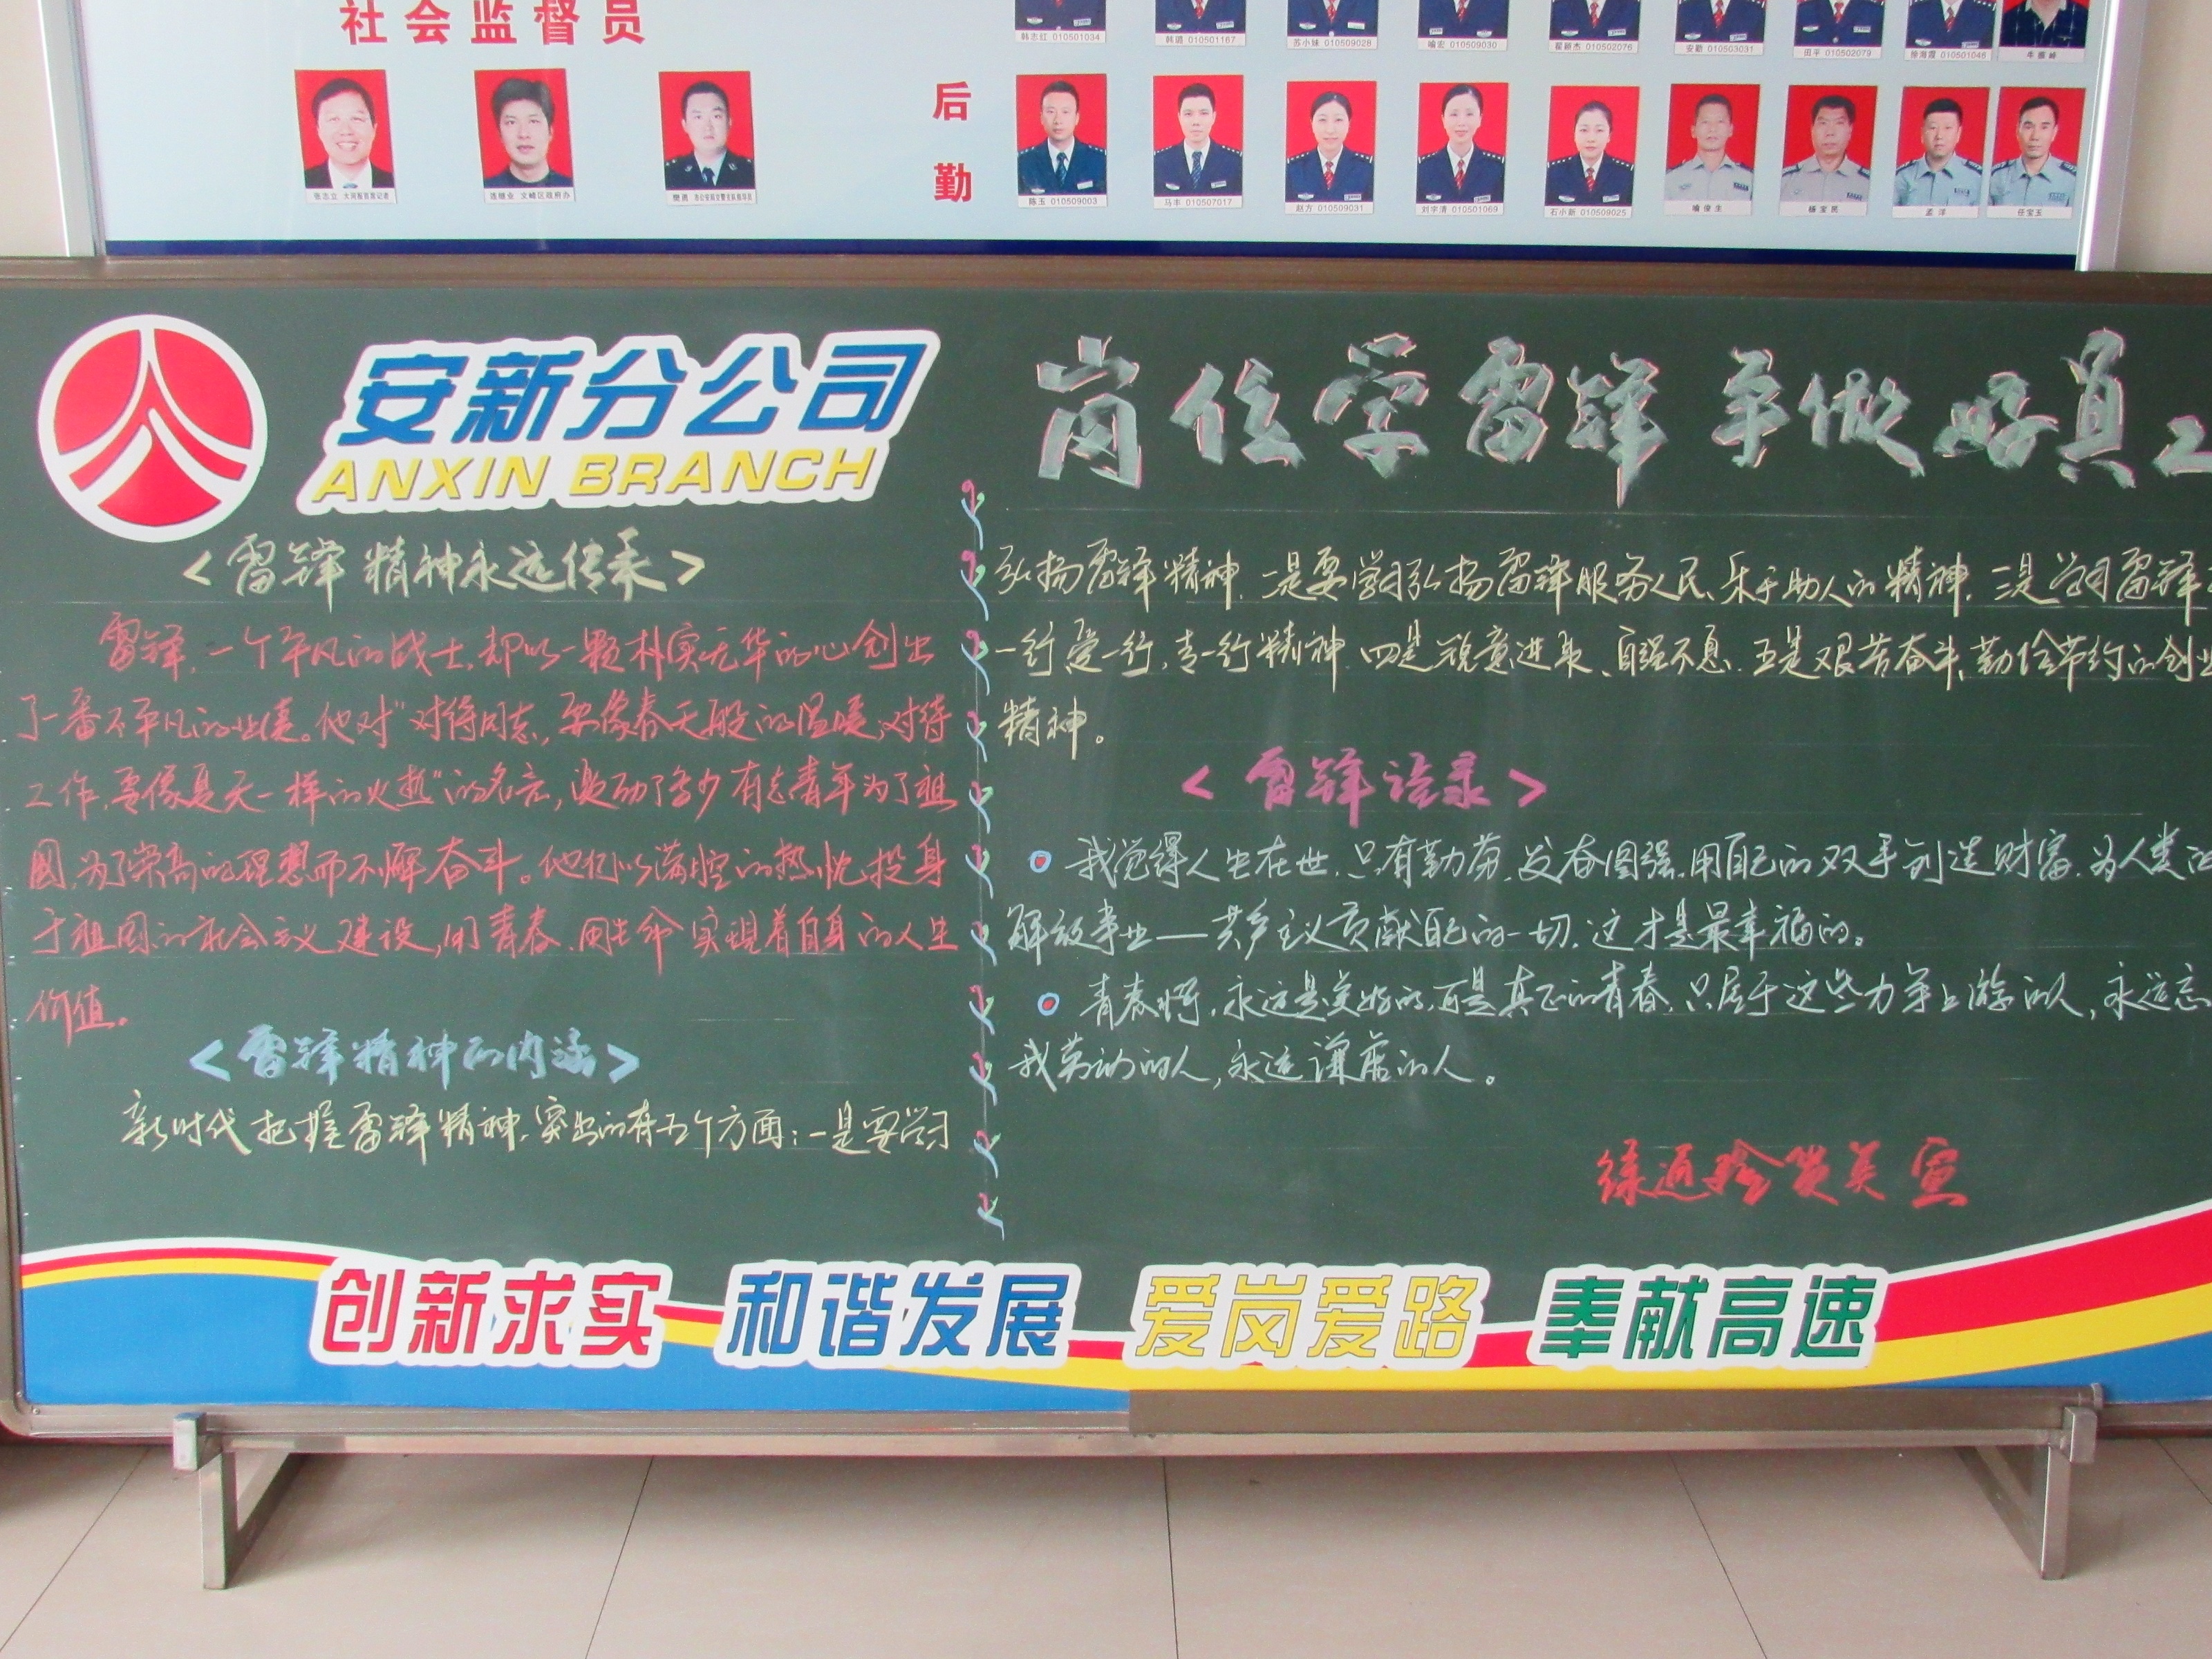 社会监督员
韩志红 010501034
韩璐 010501167
苏小妹 010509028
喻宏 010509030
翟颖杰 010502076
安勤 010503031
田平 010502079
徐海霞 010501045
牟振峰
后勤
张志立 大河报首席记者
连继业 文峰区政府办
樊勇
陈玉 010509003
马丰 010507017
赵方 010509031
刘宇清 010501069
石小新 010509025
喻俊生
杨宝民
孟洋
任宝玉
安新分公司
ANXIN BRANCH
岗位学雷锋 争做好员工
<雷锋精神永远传承>
雷锋,一个平凡的战士,却以一颗朴实无华的心创出
了一番不平凡的业绩。他对"对待同志,要像春天般的温暖;对待
工作,要像夏天一样的火热"的名言,激励了多少有志青年为了祖
国,为了崇高的理想而不懈奋斗。他们以满腔的热忱投身
于祖国的社会主义建设,用青春、用生命实现着自身的人生
价值。
<雷锋精神的内涵>
新时代把握雷锋精神,突出的有五个方面:一是要学习
弘扬雷锋精神,二是要学习弘扬雷锋服务人民、乐于助人的精神,三是学习雷锋
一行爱一行,专一行精神,四是锐意进取、自强不息,五是艰苦奋斗、勤俭节约的创业
精神。
<雷锋语录>
我觉得人生在世,只有勤劳,发奋图强,用自己的双手创造财富,为人类的
解放事业——共产主义贡献自己的一切,这才是最幸福的。
青春啊,永远是美好的,可是真正的青春,只属于这些力争上游的人,永远忘
我劳动的人,永远谦虚的人。
绿通检验美宣
创新求实 和谐发展 爱岗爱路 奉献高速